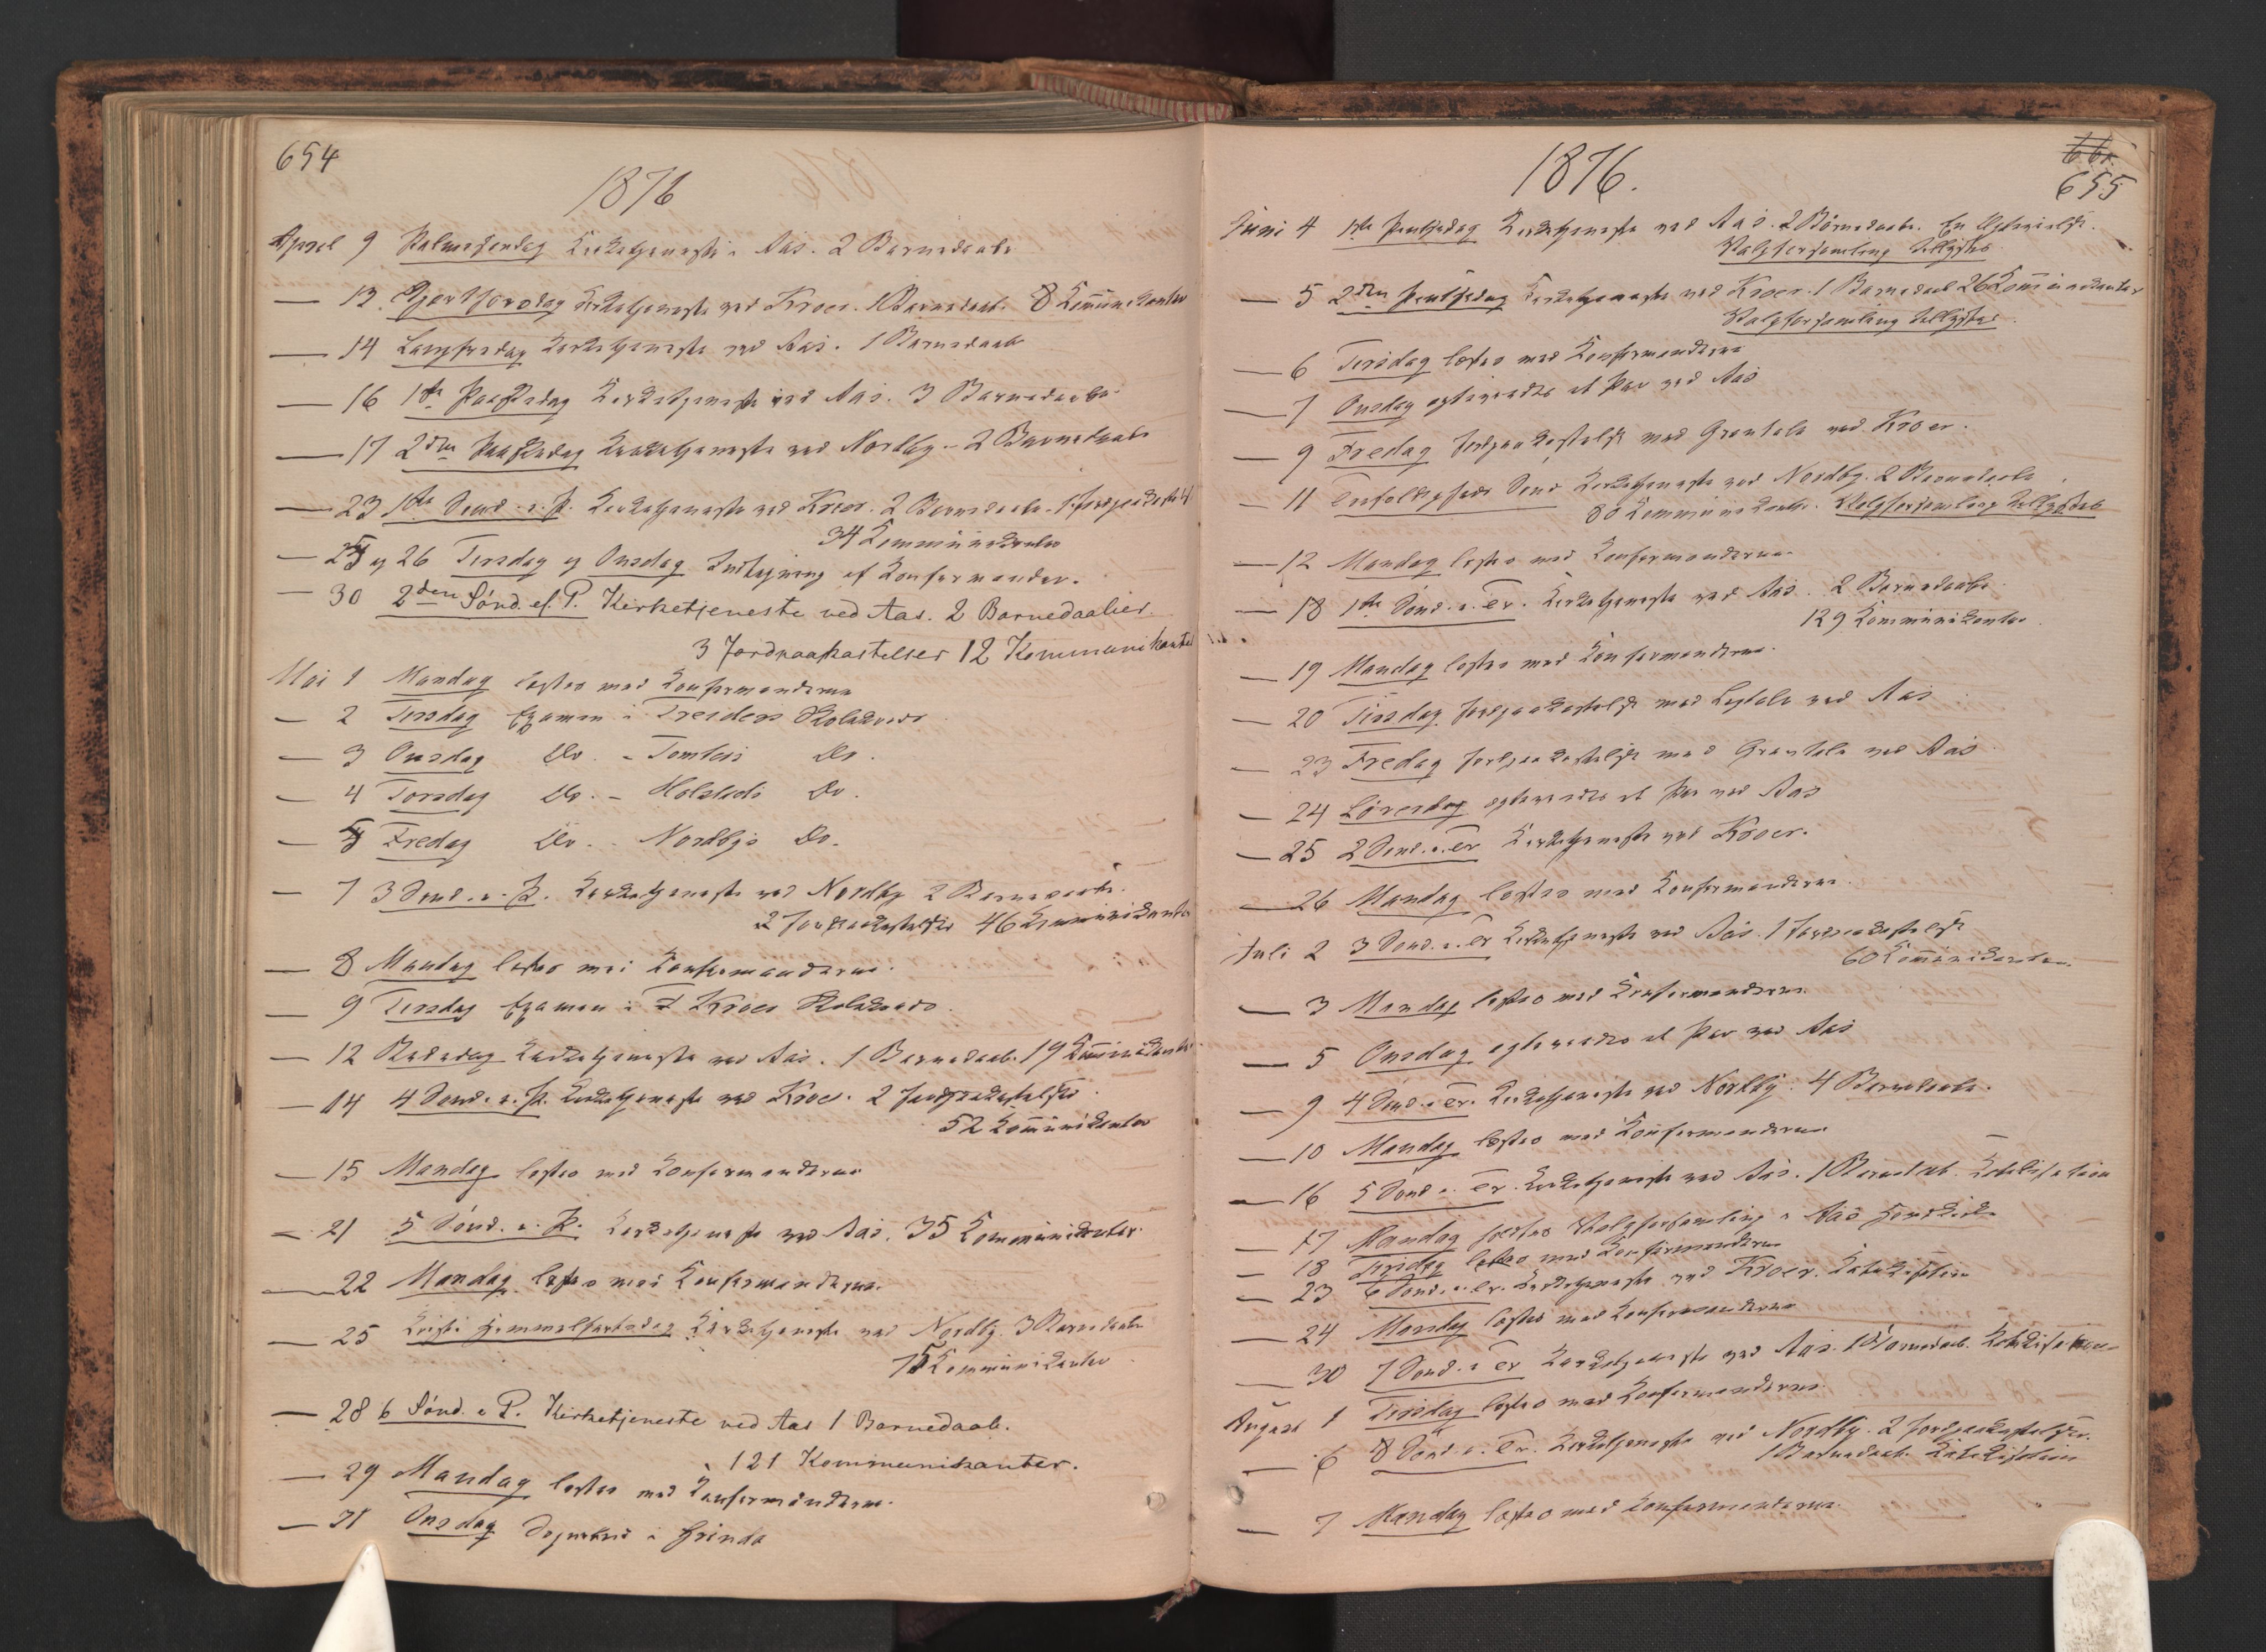 654
1876
April 9 Palmesøndag Kirketjeneste i Aas. 2 Barnedaabe
— 13 Skjærthorsdag Kirketjeneste ved Kroer. 1 Barnedaab. 8 Kommunikanter
— 14 Langfredag Kirketjeneste ved Aas. 1 Barnedaab
— 16 1ste Paaskedag Kirketjeneste ved Aas. 3 Barnedaabe
— 17 2den Paaskedag Kirketjeneste ved Nordby - 2 Barnedaabe
— 23 1ste Sønd. e. P. Kirketjeneste ved Kroer. 2 Barnedaabe - 1 Jordpaakastelse
34 Kommunikanter
— 25 og 26 Tirsdag og Onsdag Indtegning af Konfirmander.
— 30 2den Sønd. ef. P. Kirketjeneste ved Aas. 2 Barnedaabe
3 Jordpaakastelser 12 Kommunikanter
Mai 1 Mandag læstes med Konfirmanderne
— 2 Tirsdag Examen i Treiders Skolekreds
— 3 Onsdag Do. - Tomters Do.
— 4 Torsdag Do. - Holstads Do.
— 5 Fredag Do. - Nordbys Do.
— 7 3 Sønd. e. P. Kirketjeneste ved Nordby 2 Barnedaabe.
2 Jordpaakastelser 46 Kommunikanter
— 8 Mandag læstes med Konfirmanderne.
— 9 Tirsdag Examen i Kroer Skolekreds.
— 12 Bededag Kirketjeneste ved Aas. 1 Barnedaab. 19 Kommunikanter
— 14 4 Sønd. e. P. Kirketjeneste ved Kroer. 2 Jordpaakastelser.
52 Kommunikanter
— 15 Mandag læstes med Konfirmanderne
— 21 5 Sønd. e. P. Kirketjeneste ved Aas. 35 Kommunikanter.
— 22 Mandag læstes med Konfirmanderne.
— 25 Kristi Himmelfartsdag Kirketjeneste ved Nordby. 3 Barnedaabe
75 Kommunikanter
— 28 6 Sønd. e P. Kirketjeneste ved Aas 1 Barnedaab.
121 Kommunikanter.
— 29 Mandag læstes med Konfirmanderne.
— 31 Onsdag i Grinda
1876.
655
Juni 4 1ste Pintsedag Kirketjeneste ved Aas. 2 Barnedaabe. En Egtevielse.
Valgforsamling tillystes
— 5 2den Pintsedag Kirketjeneste ved Kroer. 1 Barnedaab 26 Kommunikanter
Valgforsamling tillystes.
— 6 Tirsdag læstes med Konfirmanderne
— 7 Onsdag egteviedes et Par ved Aas
— 9 Fredag Jordpaakastelse med Gravtale ved Kroer.
— 11 Trefoldigheds Sønd Kirketjeneste ved Nordby. 2 Barnedaabe
80 Kommunikanter. Valgforsamling tillystes
— 12 Mandag læstes med Konfirmanderne
— 18 1ste Sønd. e. Tr. Kirketjeneste ved Aas. 2 Barnedaabe
129 Kommunikanter
— 19 Mandag læstes med Konfirmanderne.
— 20 Tirsdag Jordpaakastelse med Ligtale ved Aas
— 23 Fredag Jordpaakastelse med Gravtale ved Aas.
— 24 Lørerdag egteviedes et Par ved Aas
— 25 2 Sønd. e. Tr Kirketjeneste ved Kroer.
— 26 Mandag læstes med Konfirmanderne.
Juli 2 3 Sønd. e. Tr Kirketjeneste ved Aas. 1 Jordpaakastelse
60 Kommunikanter.
— 3 Mandag læstes med Konfirmanderne
— 5 Onsdag egteviedes et Par ved Aas
— 9 4 Sønd. e Tr. Kirketjeneste ved Nordby. 4 Barnedaabe.
— 10 Mandag læstes med Konfirmanderne
— 16 5 Sønd e. Tr. Kirketjeneste ved Aas. 1 Barnedaab. Katekisation
— 17 Mandag holdtes Valgforsamling i Aas Hovedkirke
— 18 Tirsdag læstes med Konfirmanderne
— 23 6 Sønd. e. Tr. Kirketjeneste ved Kroer. Katekisation
— 24 Mandag læstes med Konfirmanderne
— 30 7 Sønd. e Tr Kirketjeneste ved Aas. 1 Barnedaab. Katekisation
August 1 Tirsdag læstes med Konfirmanderne.
— 6 8 Sønd. e. Tr. Kirketjeneste ved Nordby. 2 Jordpaakastelser.
1 Barnedaab. Katekisation
— 7 Mandag læstes med Konfirmanderne.